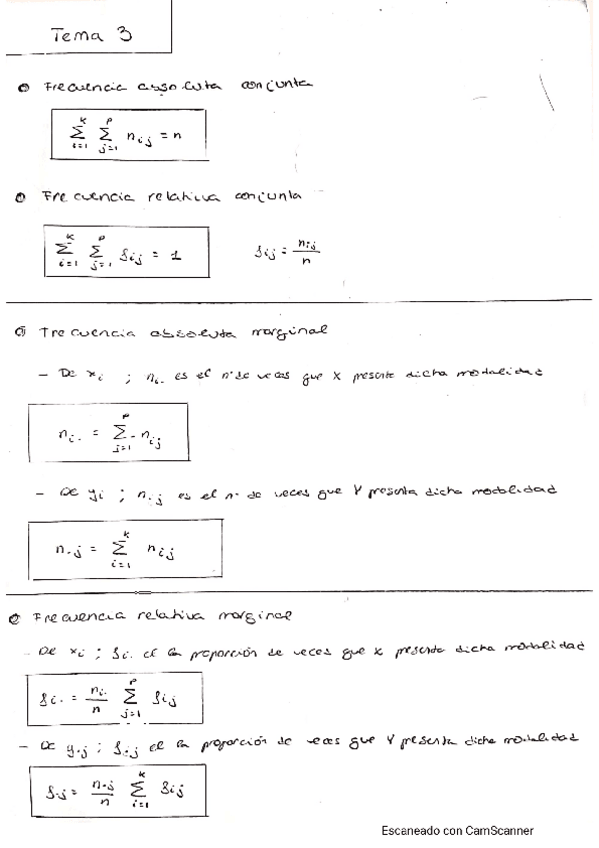 Tema 3
Frecuencia absoluta conjunta
∑_{i=1}^{k} ∑_{j=1}^{p} n_{ij} = n
Frecuencia relativa conjunta
∑_{i=1}^{k} ∑_{j=1}^{p} f_{ij} = 1    f_{ij} = n_{ij}/n
Frecuencia absoluta marginal
- De x_i ; n_{i·} es el nº de veces que X presenta dicha modalidad
n_{i·} = ∑_{j=1}^{p} n_{ij}
- De y_j ; n_{·j} es el nº de veces que Y presenta dicha modalidad
n_{·j} = ∑_{i=1}^{k} n_{ij}
Frecuencia relativa marginal
- De x_i ; f_{i·} el la proporción de veces que x presenta dicha modalidad
f_{i·} = n_{i·}/n ∑_{j=1}^{p} f_{ij}
- De y_{·j} ; f_{·j} el la proporción de veces que Y presenta dicha modalidad
f_{·j} = n_{·j}/n ∑_{i=1}^{k} f_{ij}
Escaneado con CamScanner